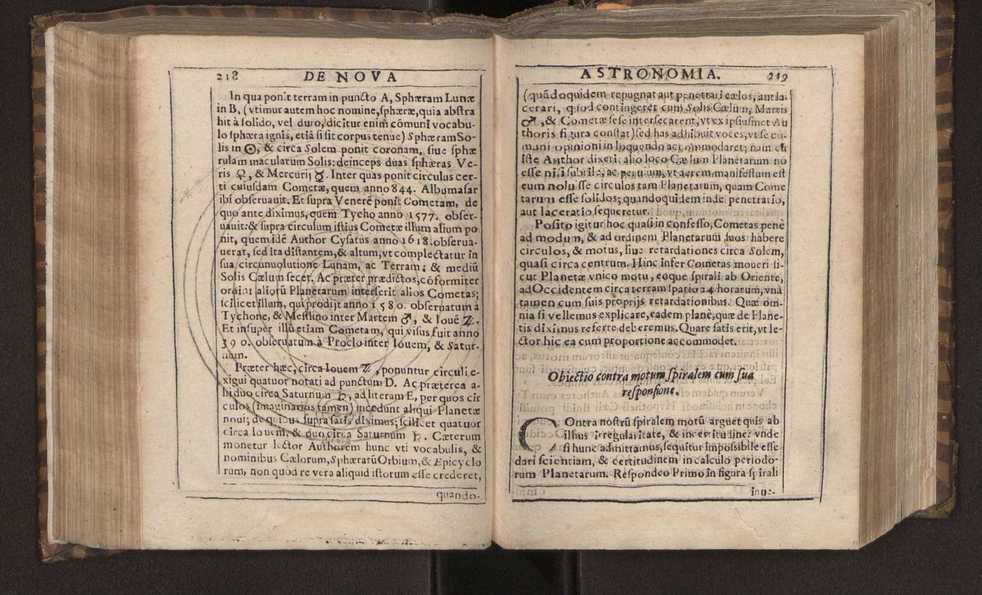 218 DE NOVA
In qua ponit terram in puncto A, Sphæram Lunæ
in B, (vtimur autem hoc nomine, sphæræ, quia abstra
hit à solido, vel duro, dicitur enim cõmuni vocabu-
lo sphæra ignis, etiã si sit corpus tenue) Sphæram So-
lis in ☉, & circa Solem ponit coronam, siue sphæ
rulam macularum Solis: deinceps duas sphæras Ve-
ris ♀, & Mercurij ☿. Inter quas ponit circulus cer-
ti cuiusdam Cometæ, quem anno 844. Albumasar
ibi obseruauit. Et supra Venerẽ ponit Cometam, de
quo ante diximus, quem Tycho anno 1577. obser-
uauit: & supra circulum istius Cometæ illum alium po
nit, quem idẽ Author Cysatus anno 1618. obserua-
uerat, sed ita distantem, & altum, vt complectatur in
sua circunuolutione Lunam, ac Terram; & mediũ
Solis Cælum secet. Ac præter prædictos, cõformiter
ordini aliorũ Planetarum interserit alios Cometas;
scilicet illum, qui prodijt anno 1580. obseruatum à
Tychone, & Mestlino inter Martem ♂, & Iouẽ ♃.
Et insuper illũ etiam Cometam, qui visus fuit anno
390. obseruatum à Proclo inter Iouem, & Satur-
num.
Præter hæc, circa Iouem ♃, ponuntur circuli e-
xigui quatuor notati ad punctum D. Ac præterea a-
lij duo circa Saturnum ♄, ad literam E, per quos cir
culos (imaginarios tamen) incedunt aliqui Planetæ
noui; de quibus supra satis diximus; scilicet quatuor
circa Iouem, & duo circa Saturnum ♄. Cæterum
monetur lector Authorem hunc vti vocabulis, &
nominibus Cælorum, Sphærarũ Orbium, & Epicyclo
rum, non quod re vera aliquid istorum esse crederet,
quando-
ASTRONOMIA. 219
(quãdoquidem repugnat aut penetrari cælos, aut la-
cerari, quod contingeret cum Solis Cælum, Martis
♂, & Cometæ sese intersecarent, vt ex ipsiusmet Au
thoris figura constat) sed has adhibuit voces, vt se cõ-
muni opinioni in loquendo accommodaret; nam et
iste Author dixerit alio loco Cælum Planetarum nõ
esse nisi subtile, ac peruium, vt aerem manifestum est
eum noluisse circulos tam Planetarum, quam Come
tarum esse solidos; quandoquidem inde penetratio,
aut laceratio sequeretur.
Posito igitur hoc quasi in confesso, Cometas penè
ad modum, & ad ordinem Planetarum suos habere
circulos, & motus, siue retardationes circa Solem,
quasi circa centrum. Hinc infer Cometas moueri si-
cut Planetæ vnico motu, eoque spirali ab Oriente,
ad Occidentem circa terram spatio 24 horarum, vnà
tamen cum suis proprijs retardationibus. Quæ om-
nia si vellemus explicare, eadem planè, quæ de Plane-
tis diximus referre deberemus. Quare satis erit, vt le-
ctor hic ea cum proportione accommodet.
Obiectio contra motum spiralem cum sua
responsione.
COntra nostrũ spiralem motũ arguet quis ab
illius irregularitate, & incertitudine: vnde
si hunc admittamus, sequitur impossibile esse
dari scientiam, & certitudinem in calculo periodo-
rum Planetarum. Respondeo Primo in figura spirali
inue-